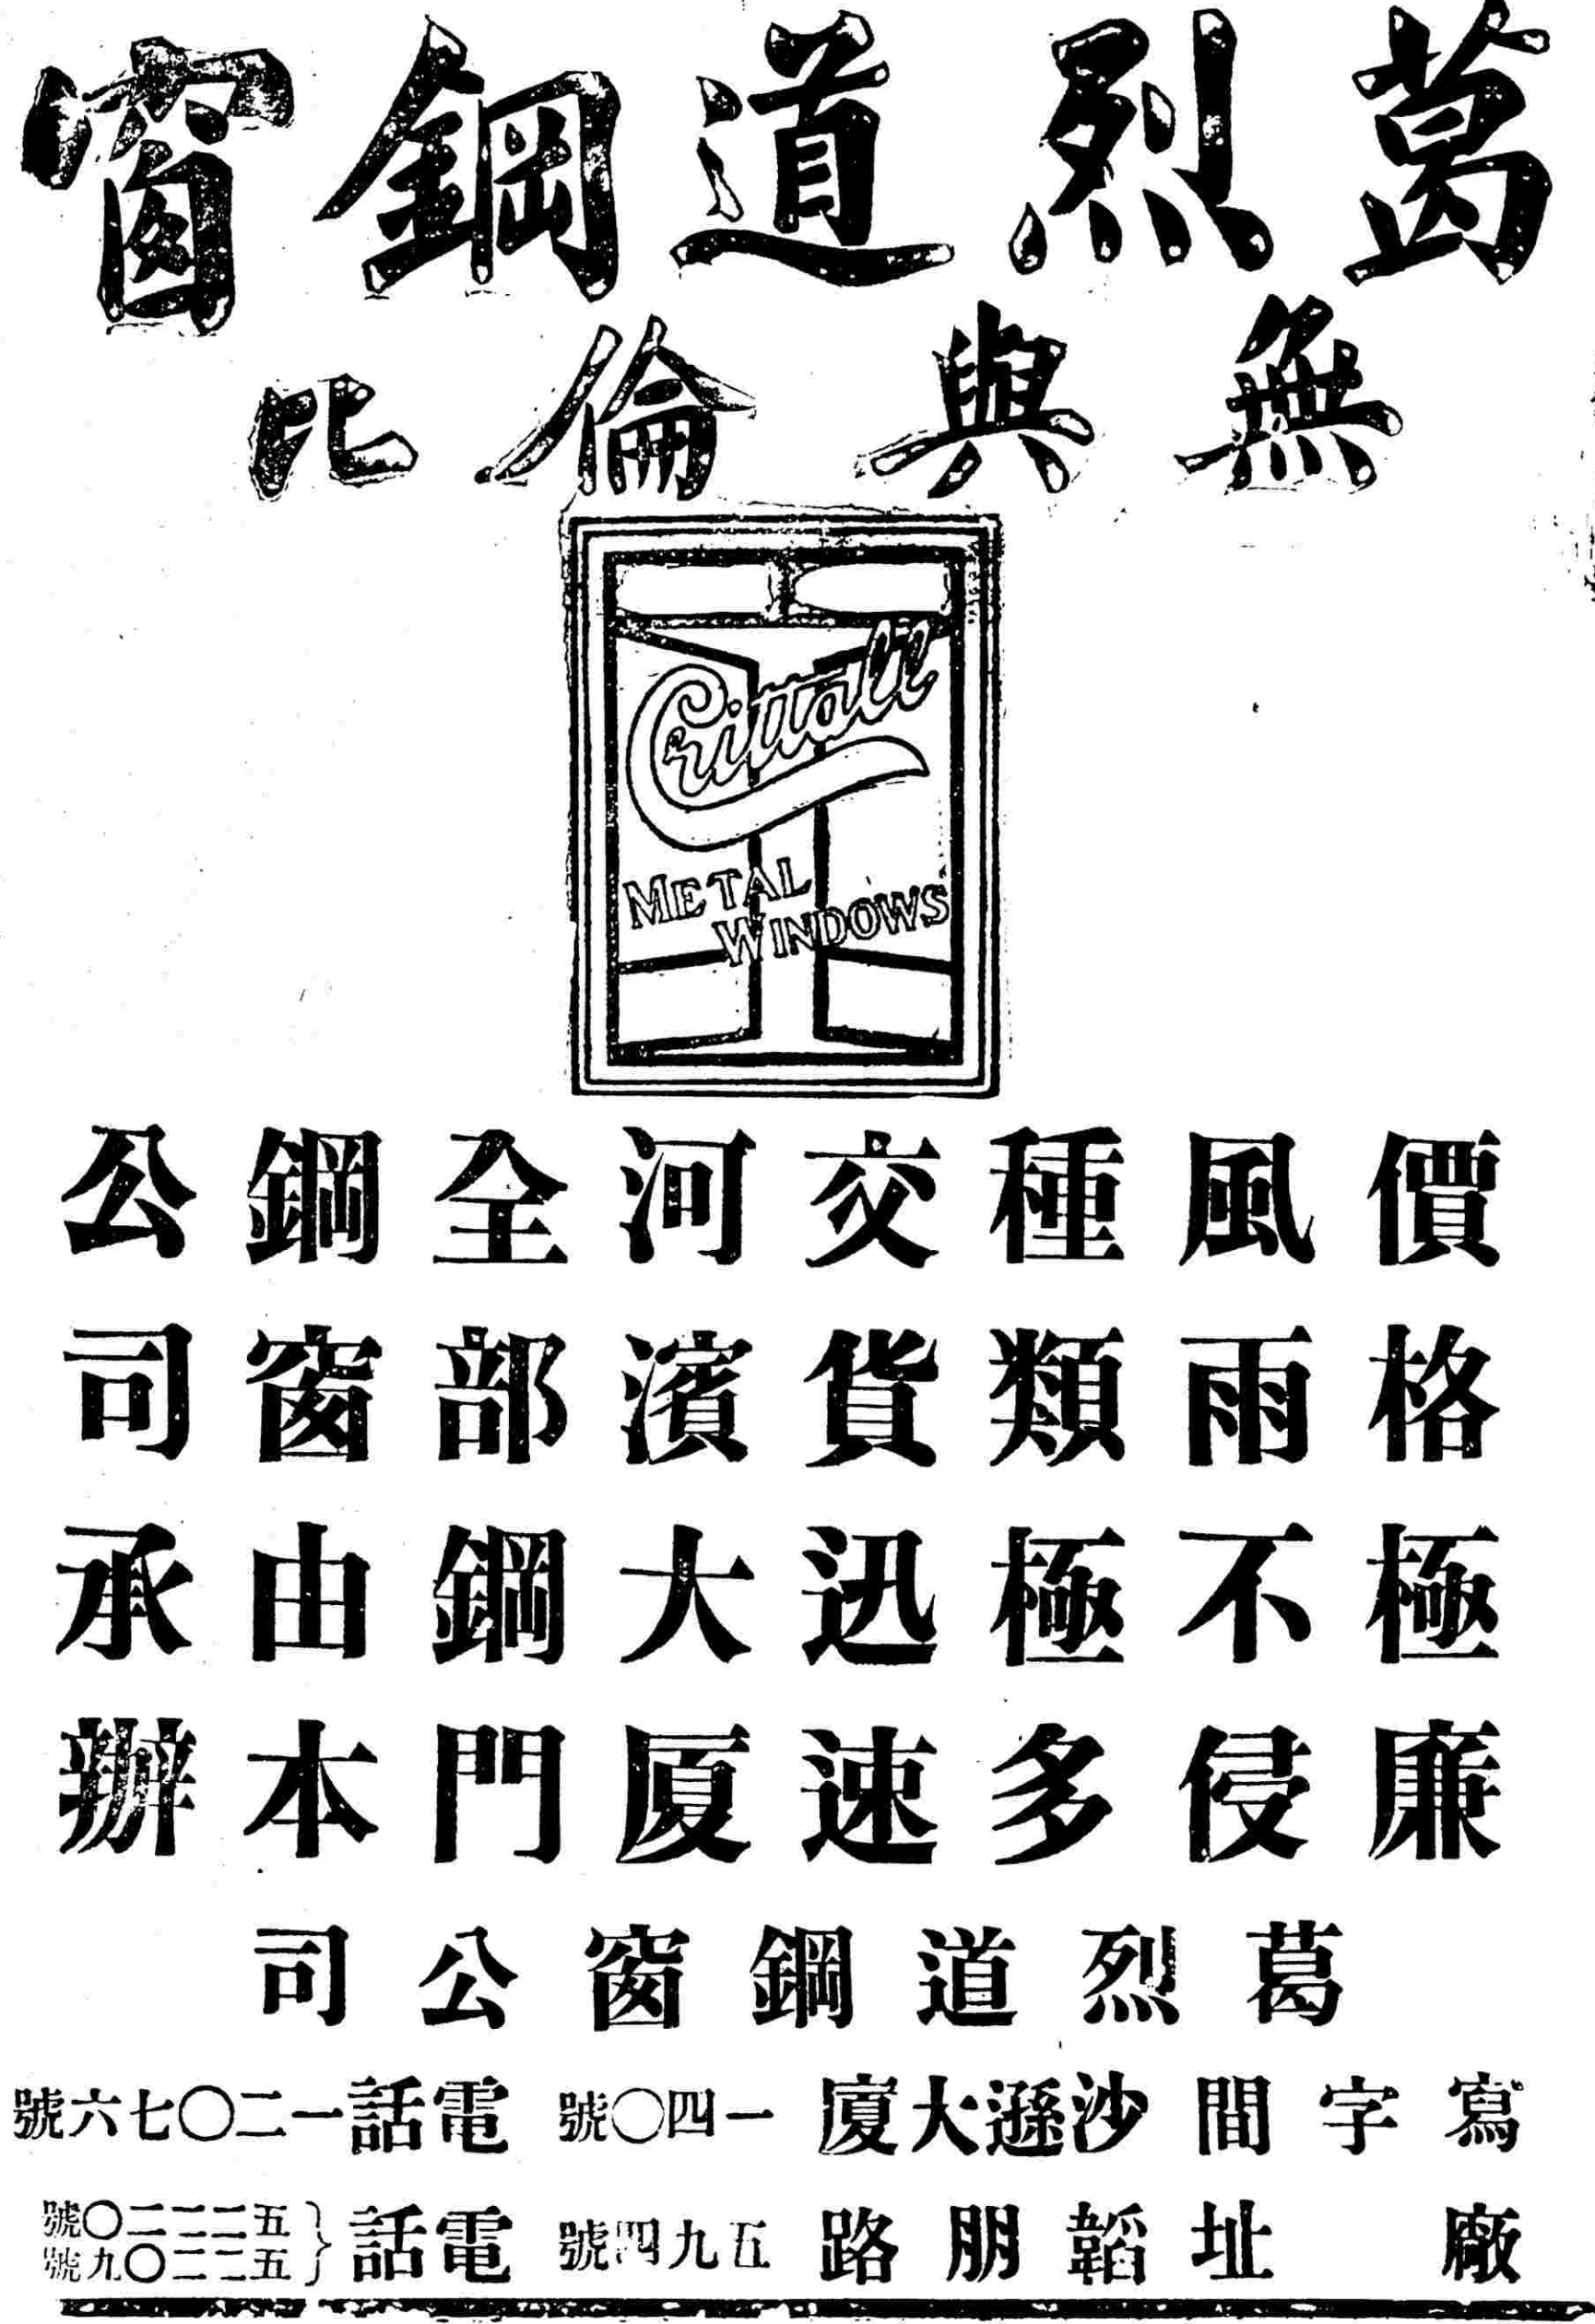 葛烈道鋼窗
無與倫比
Crittall
METAL
WINDOWS
價格極廉
風雨不侵
種類極多
交貨迅速
河濱大廈
全部鋼門
鋼窗由本
公司承辦
葛烈道鋼窗公司
寫字間 沙遜大廈 一四〇號 電話 一二〇七六號
廠址 韜朋路 五九四號 電話
五二二二〇號
五二二〇九號